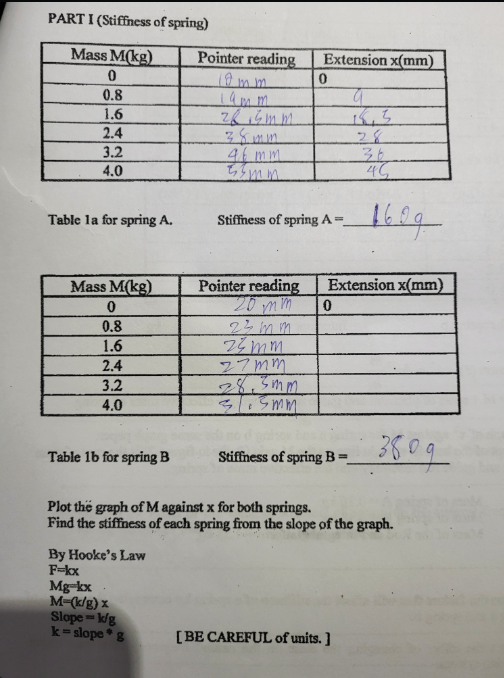 PART I (Stiffness of spring)
Mass M(kg) Pointer reading Extension x(mm)
0 10 mm 0
0.8 19 mm 9
1.6 28.5mm 18.5
2.4 38 mm 28
3.2 46 mm 36
4.0 55mm 45
Table 1a for spring A. Stiffness of spring A = 160g
Mass M(kg) Pointer reading Extension x(mm)
0 20 mm 0
0.8 23 mm
1.6 25mm
2.4 27mm
3.2 28.5mm
4.0 31.5mm
Table 1b for spring B Stiffness of spring B = 380g
Plot the graph of M against x for both springs.
Find the stiffness of each spring from the slope of the graph.
By Hooke's Law
F=kx
Mg=kx
M=(k/g) x
Slope = k/g
k = slope * g [ BE CAREFUL of units. ]